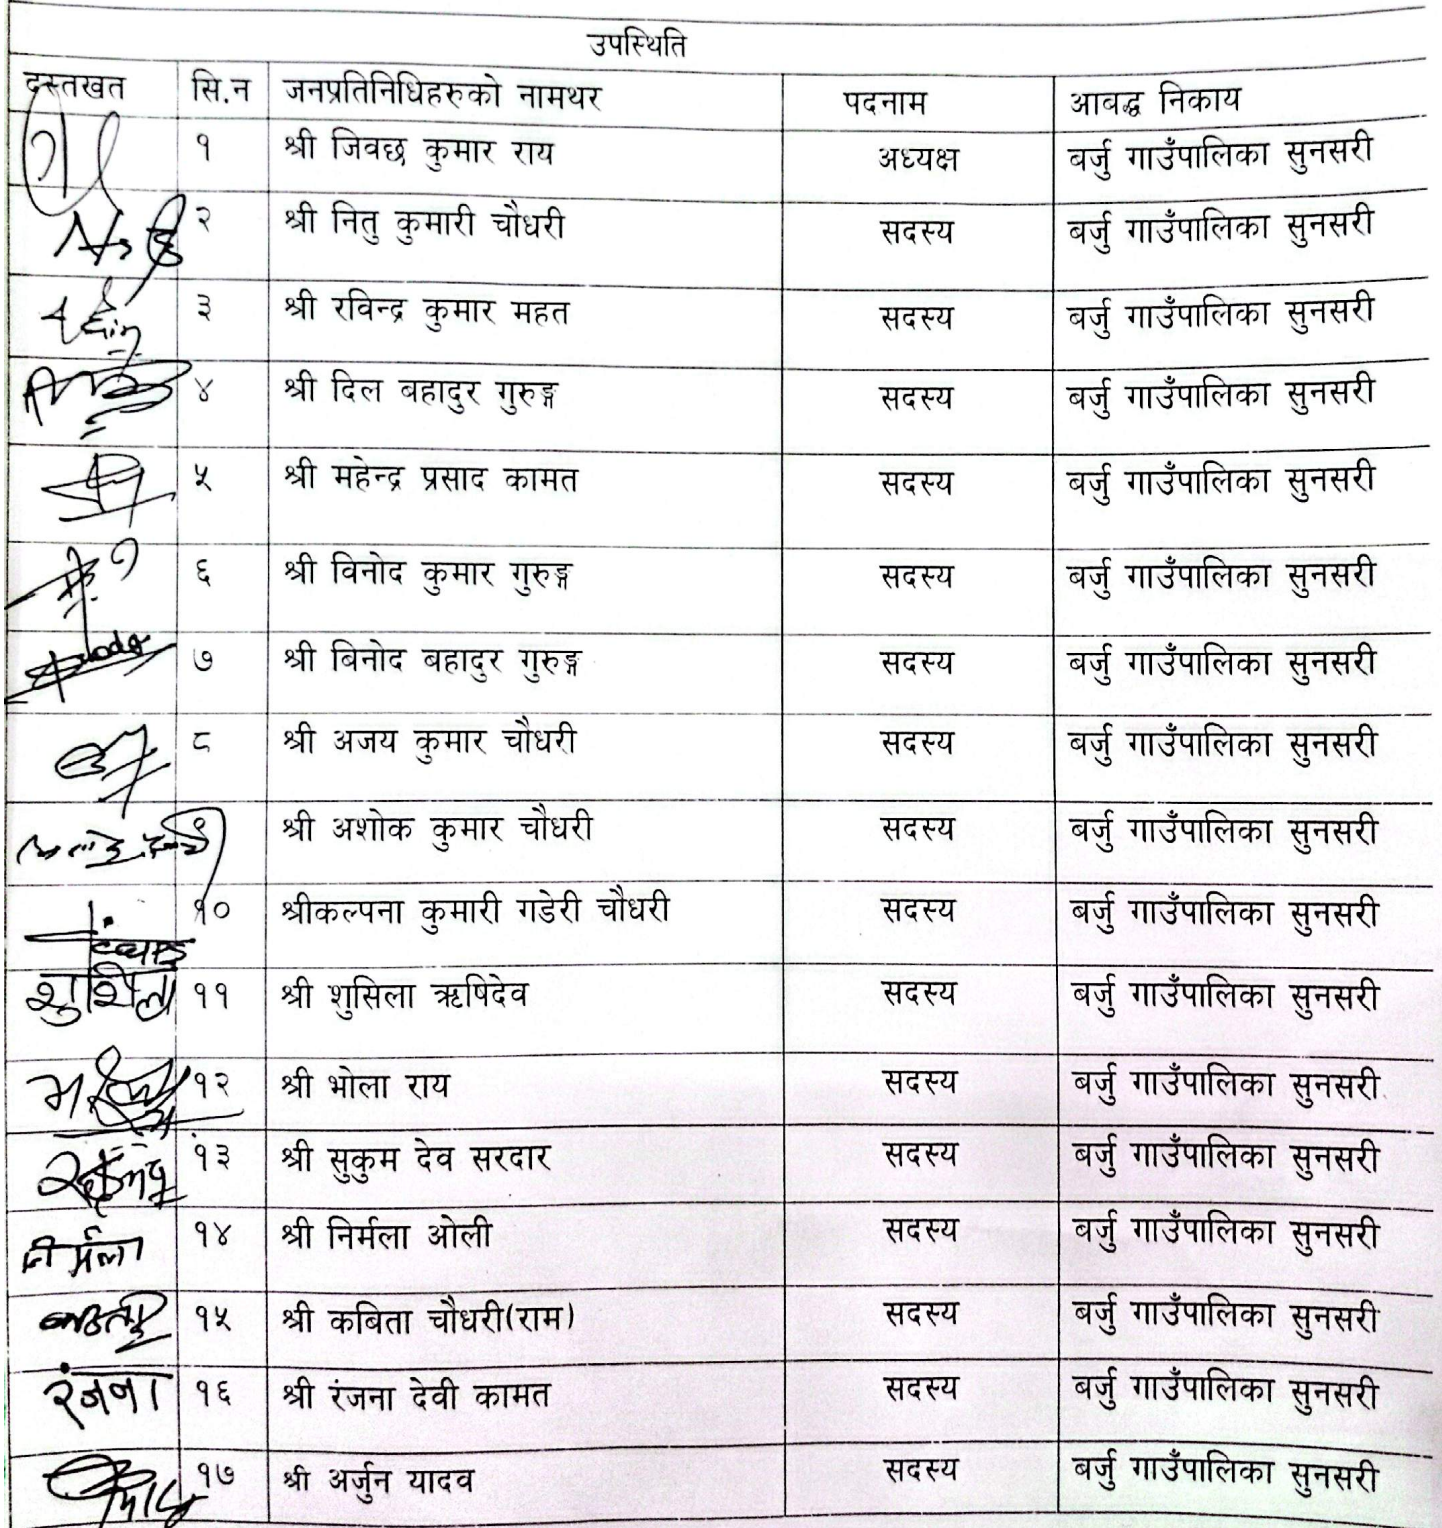 उपस्थिति
दस्तखत सि.न जनप्रतिनिधिहरुको नामथर पदनाम आवद्ध निकाय
१ श्री जिवछ कुमार राय अध्यक्ष बर्जु गाउँपालिका सुनसरी
२ श्री नितु कुमारी चौधरी सदस्य बर्जु गाउँपालिका सुनसरी
३ श्री रविन्द्र कुमार महत सदस्य बर्जु गाउँपालिका सुनसरी
४ श्री दिल बहादुर गुरुङ्ग सदस्य बर्जु गाउँपालिका सुनसरी
५ श्री महेन्द्र प्रसाद कामत सदस्य बर्जु गाउँपालिका सुनसरी
६ श्री विनोद कुमार गुरुङ्ग सदस्य बर्जु गाउँपालिका सुनसरी
७ श्री बिनोद बहादुर गुरुङ्ग सदस्य बर्जु गाउँपालिका सुनसरी
८ श्री अजय कुमार चौधरी सदस्य बर्जु गाउँपालिका सुनसरी
श्री अशोक कुमार चौधरी सदस्य बर्जु गाउँपालिका सुनसरी
१० श्रीकल्पना कुमारी गडेरी चौधरी सदस्य बर्जु गाउँपालिका सुनसरी
शुशिला ११ श्री शुसिला ऋषिदेव सदस्य बर्जु गाउँपालिका सुनसरी
१२ श्री भोला राय सदस्य बर्जु गाउँपालिका सुनसरी
१३ श्री सुकुम देव सरदार सदस्य बर्जु गाउँपालिका सुनसरी
निर्मला १४ श्री निर्मला ओली सदस्य बर्जु गाउँपालिका सुनसरी
१५ श्री कबिता चौधरी(राम) सदस्य बर्जु गाउँपालिका सुनसरी
रंजना १६ श्री रंजना देवी कामत सदस्य बर्जु गाउँपालिका सुनसरी
१७ श्री अर्जुन यादव सदस्य बर्जु गाउँपालिका सुनसरी